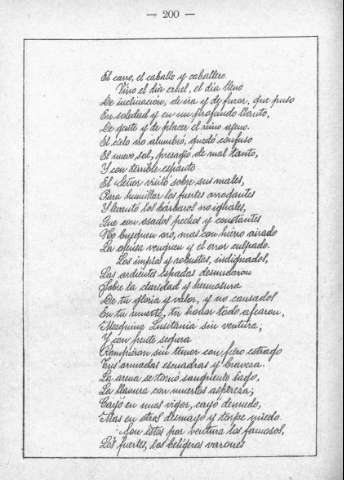 — 200 —
El carro, el caballo y caballero.
Vino el día cruel, el día lleno
De indinación, de ira y de furor, que puso
En soledad y en un profundo llanto,
De gente y de placer el reino ajeno.
El cielo no alumbró, quedó confuso
El nuevo sol, presagio de mal tanto,
Y con terrible espanto
El Señor visitó sobre sus males,
Para humillar los fuertes arrogantes
Y levantó los bárbaros no iguales,
Que con osados pechos y constantes
No busquen oro, mas con hierro airado
La ofensa venguen y el error culpado.
Los impíos y robustos, indignados,
Las ardientes espadas desnudaron
Sobre la claridad y hermosura
De tu gloria y valor, y no cansados
En tu muerte, tu honor todo afearon,
Mezquina Lusitania sin ventura;
Y con frente segura
Rompieron sin temor con fiero estrago
Tus armadas escuadras y braveza.
La arena se tornó sangriento lago,
La llanura con muertos aspereza;
Cayó en unos vigor, cayó denuedo,
Mas en otros desmayo y torpe miedo.
¿Son éstos por ventura los famosos,
Los fuertes, los belígeros varones